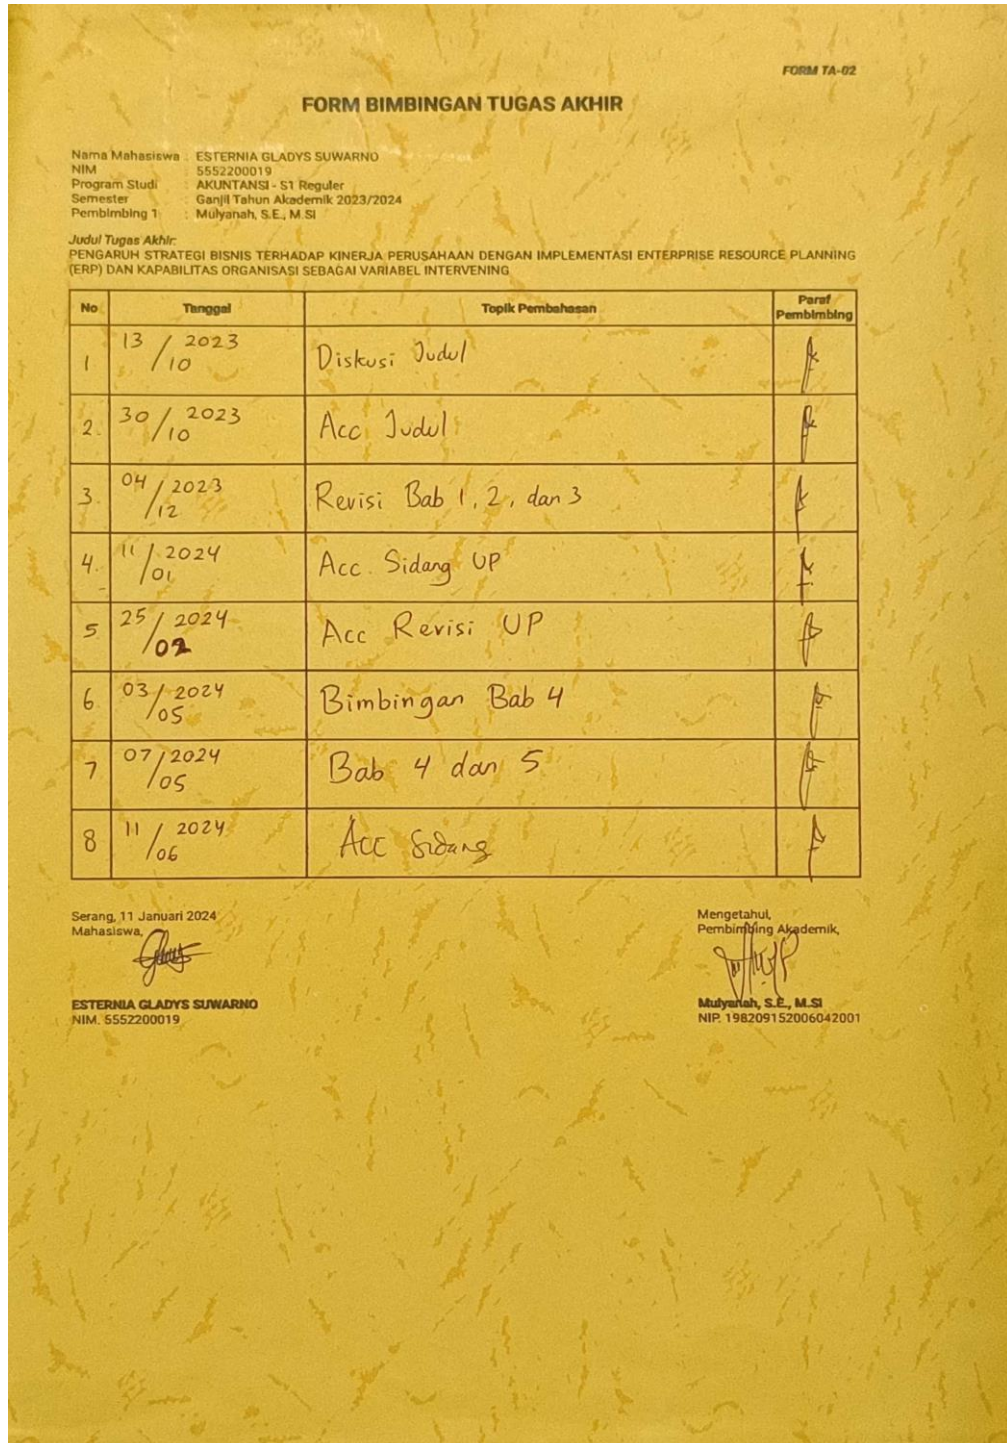 FORM TA-02
FORM BIMBINGAN TUGAS AKHIR
Nama Mahasiswa : ESTERNIA GLADYS SUWARNO
NIM : 5552200019
Program Studi : AKUNTANSI - S1 Reguler
Semester : Ganjil Tahun Akademik 2023/2024
Pembimbing 1 : Mulyanah, S.E., M.SI
Judul Tugas Akhir:
PENGARUH STRATEGI BISNIS TERHADAP KINERJA PERUSAHAAN DENGAN IMPLEMENTASI ENTERPRISE RESOURCE PLANNING
(ERP) DAN KAPABILITAS ORGANISASI SEBAGAI VARIABEL INTERVENING
No Tanggal Topik Pembahasan Paraf Pembimbing
1 13/10 2023 Diskusi Judul
2. 30/10 2023 Acc Judul
3. 04/12 2023 Revisi Bab 1, 2, dan 3
4. 11/01 2024 Acc Sidang UP
5 25/02 2024 Acc Revisi UP
6 03/05 2024 Bimbingan Bab 4
7 07/05 2024 Bab 4 dan 5
8 11/06 2024 Acc Sidang
Serang, 11 Januari 2024
Mahasiswa,
ESTERNIA GLADYS SUWARNO
NIM. 5552200019
Mengetahui,
Pembimbing Akademik,
Mulyanah, S.E., M.SI
NIP. 198209152006042001